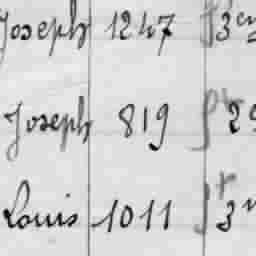 Joseph 1247 3en
Joseph 819
Louis 1011